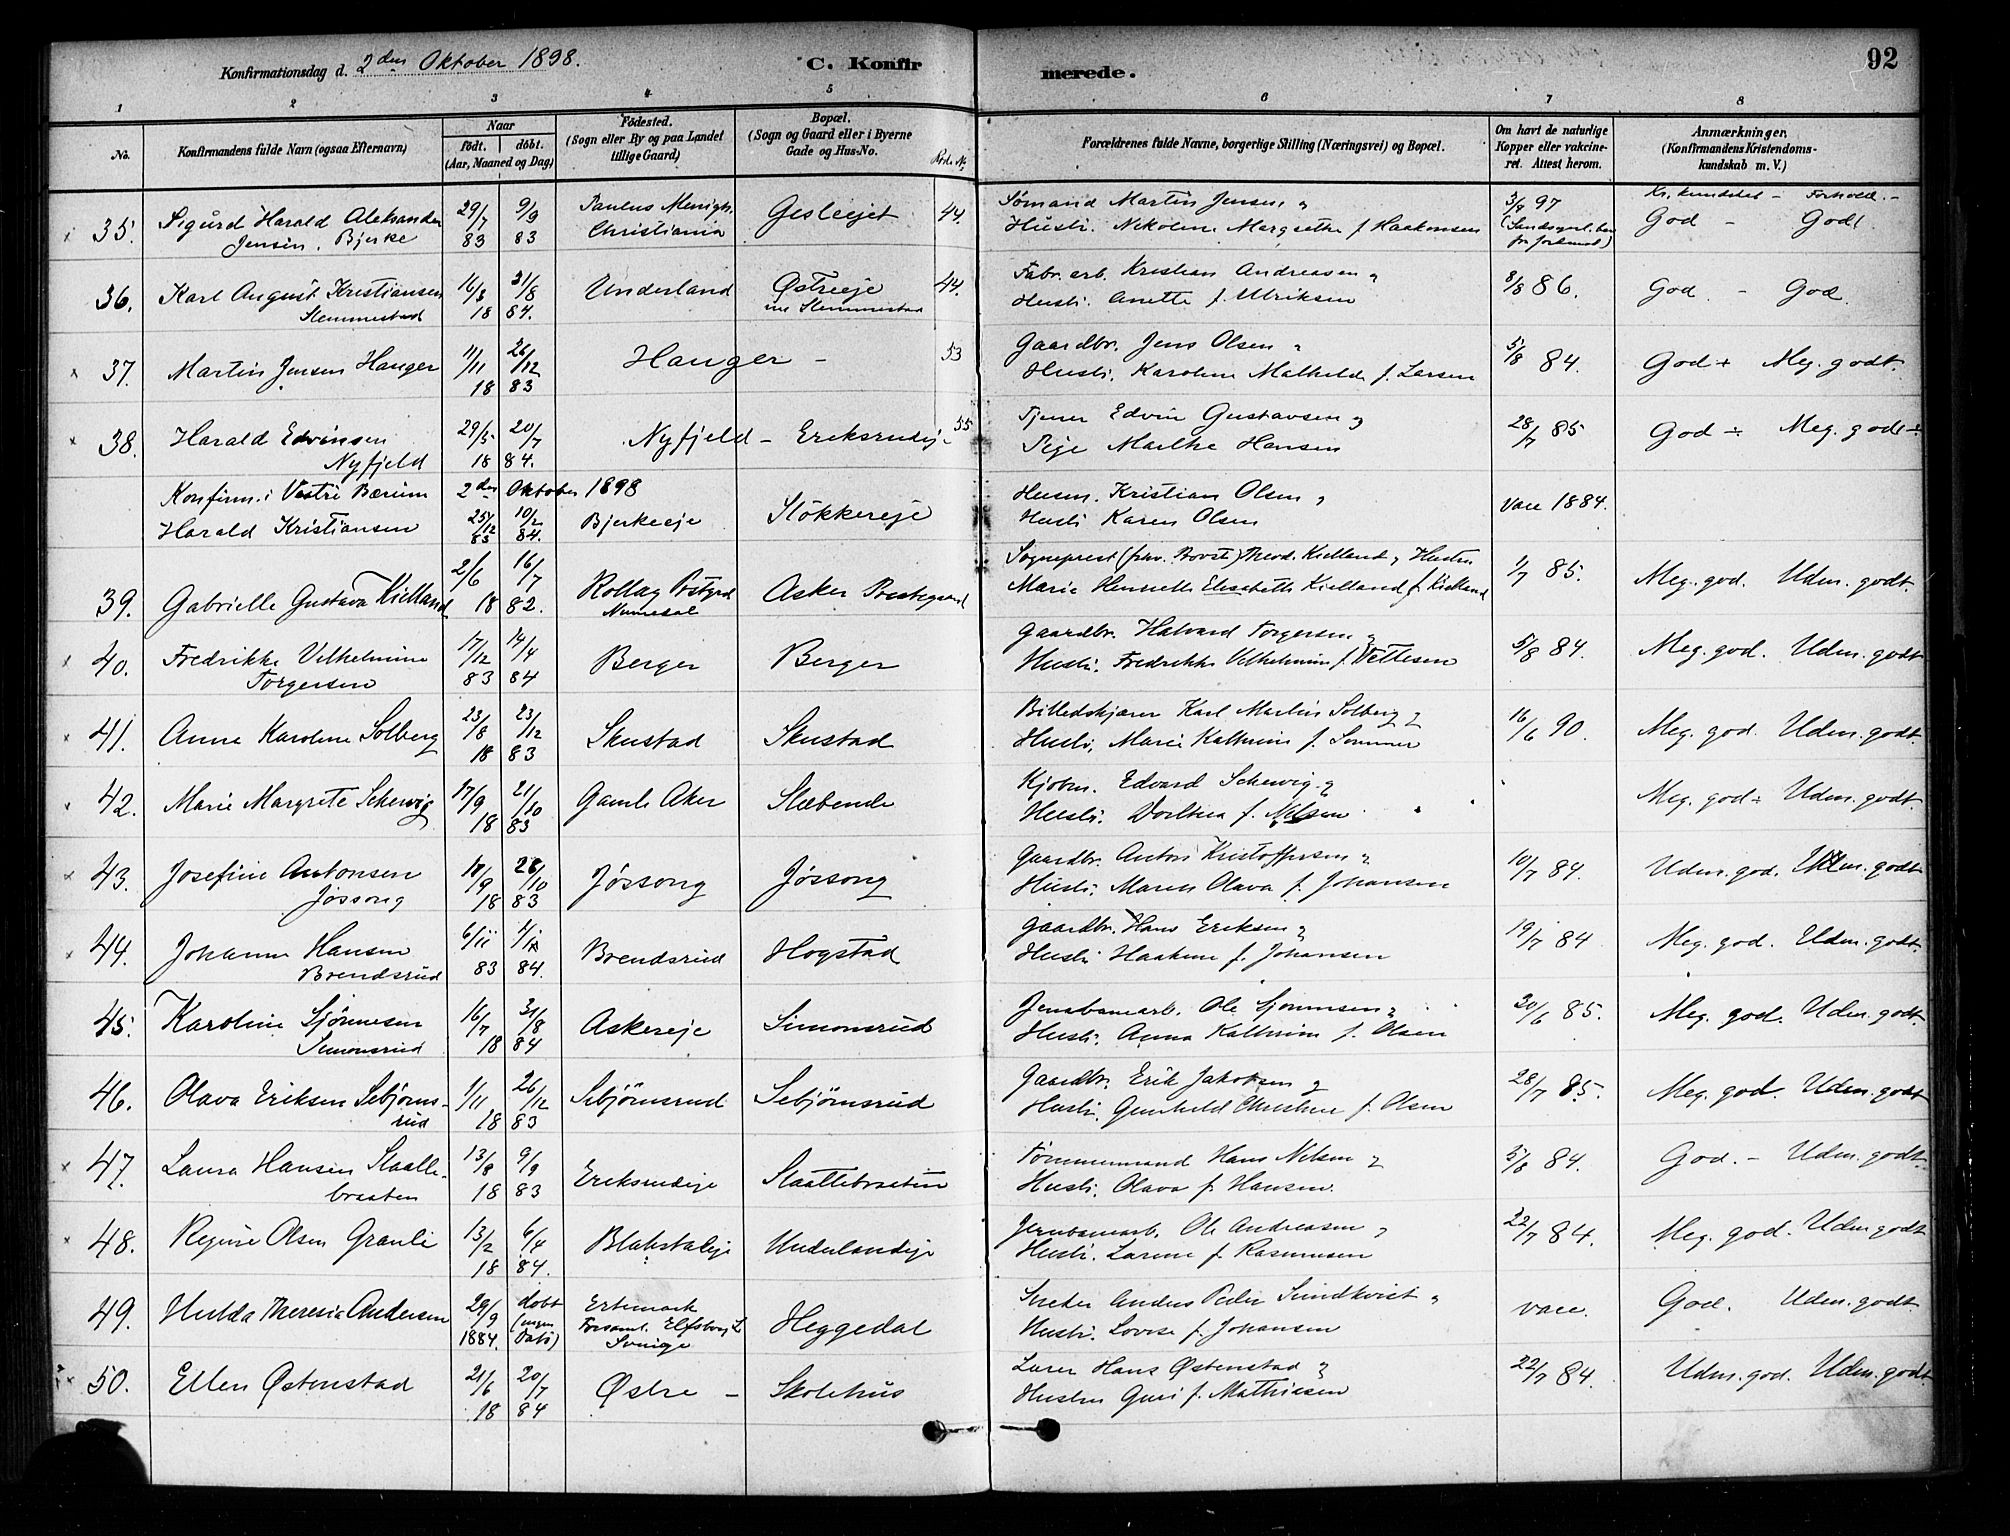 Konfirmationsdag d. 2den Oktober 1898.
C. Konfirmerede.
92
1 2 3 4 5 6 7 8
No.
Konfirmandens fulde Navn (ogsaa Efternavn)
Naar
født. døbt.
(Aar, Maaned og Dag)
Fødested.
(Sogn eller By og paa Landet
tillige Gaard)
Bopæl.
(Sogn og Gaard eller i Byerne
Gade og Hus-No.
Forældrenes fulde Navne, borgerlige Stilling (Næringsvei) og Bopæl.
Om havt de naturlige
Kopper eller vakcine-
ret. Attest herom.
Anmærkninger.
(Konfirmandens Kristendoms-
kundskab m. V.)
Kr. kundskab - Forhold. -
35. Sigurd Harald Aleksander 29/7 9/9 Paulus Menigh. Gisleejet 44 Sømand Martin Jensen, 3/9 97 God - Godt.
Jensen. Bjerke 83 83 Christiania Hustr. Nikoline Margrethe f. Haakonsen
36. Karl August Kristiansen 16/3 31/8 Underland Østreeje 44. Fabr. arb. Kristian Andreasen 8/8 86. God. - God.
Slemmestad 18 84. Slemmestad Hustr. Anette f. Ulriksen
37. Martin Jensen Hanger 11/11 26/12 Hanger - 53 Gaardbr. Jens Olsen 5/8 84. God + Meg. godt.
18 83 Hustr. Karoline Mathilde f. Larsen
38. Harald Edvinsen 29/5 20/7 Nyfjeld - Eriksrudeje 55 Tjener Edvin Gustavsen 28/7 85 God ÷ Meg. godt ÷
Nyfjeld 18 84. Pige Marthe Hansen
Konfirm. i Vestre Bærum 2den Oktober 1898 Husm. Kristian Olsen, vacc 1884.
Harald Kristiansen 25/12 83 10/2 84. Bjerkeeje Støkkereje Hustr. Karen Olsen
Sogneprest (frhv. Provst) Theod. Kielland, Hustru
39. Gabrielle Gustava Kielland 2/6 16/7 Rollag Prstgrd Asker Prestegaard Marie Henriette Elisabeth Kielland f. Kielland 1/7 85. Meg. god. Udm. godt.
18 82. Numedal
40. Fredrikke Vilhelmine 17/12 14/4 Berger Berger Gaardbr. Halvard Torgersen 5/8 84. Meg. god. Udm. godt
Torgersen 83 84 Hustr. Fredrikke Vilhelmine f. Vettesen
41. Anna Karoline Solberg 23/8 23/12 Skustad Skustad Billedskjærer Karl Martin Solberg 16/6 90. Meg. god. Udm. godt.
18 83 Hustr, Marie Kathrine f. Sommer
42. Marie Margrete Scherwig 17/9 21/10 Gamle Aker Slæbende Kjøbm. Edvard Scherwig Meg. god ÷ Udm. godt.
18 83 Hustr. Dorthea f. Nilsen
43. Josefine Antonsen 18/9 28/10 Jøssong Jøssong Gaardbr. Anton Kristoffersen 10/7 84. Udm. god. Udm. godt
Jøssong 18 83 Hustr. Maren Olava f. Johansen
44. Johanne Hansen 6/11 Brendsrud Hogstad Gaardbr. Hans Eriksen 19/7 84 Meg. god. Udm. godt.
Brendsrud 83 84. Hustr. Haakine f. Johansen
45. Karoline Sjønnesen 16/7 31/8 Askereje Simonsrud Jernbanearb. Ole Sjønnesen 30/6 85. Meg. god. Udm. godt.
Simonsrud 18 84 Hustr. Anna Kathrine f. Olsen
46. Olava Eriksen Sebjørns- 1/11 26/12 Sebjörnsrud Sebjørnsrud Gaardbr. Erik Jakobsen 28/7 85. Meg. god. Udm. godt
rud 18 83 Hustr. Gunhild Christine f. Olsen
47. Laura Hansen Slaatte- 13/8 9/9 Eriksrudeje Slaattebraaten Tømmermand Hans Nilsen 5/8 84. God. - Udm. godt.
braaten 18 83 Hustr. Olava f. Hansen.
48. Regine Olsen Granli 13/2 6/4 Blakstadeje Underlandeje Jernbanearb. Ole Andreasen 22/7 84. Meg. god. Udm. godt
18 84. Hustr. Larine f. Rasmussen
49. Hulda Theresia Andersen 29/9 døbt Ertemark Heggedal Anders Peder Sundkvist vacc. God. Udm. godt.
1884. (ingen Dato) Forsaml. Elfsborg L. Sverige Hustr. Lovise f. Johansen
50. Ellen Østenstad 21/6 20/7 Østre - Skolehus Lærer Hans Østenstad 22/7 84. Udm. god. Udm. godt.
18 84 Hustru Guri f. Mathiesen